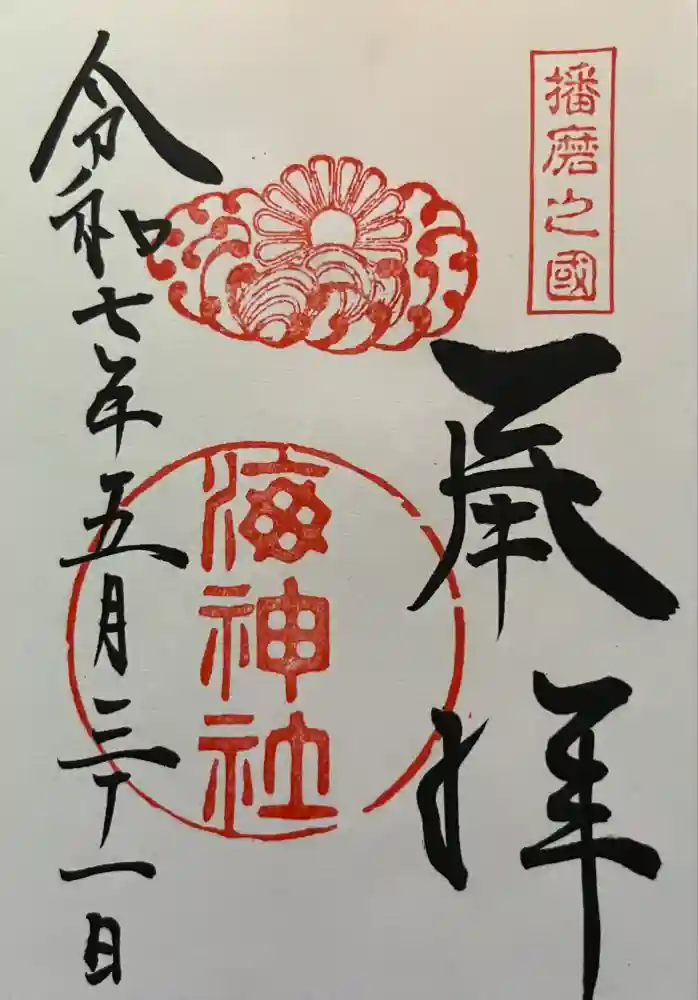 播磨之國
奉拝
海神社
令和七年五月三十一日